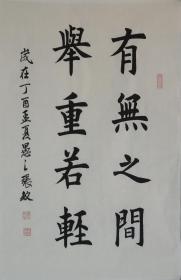 有無之間
舉重若輕
歲在丁酉孟夏愚之張敏